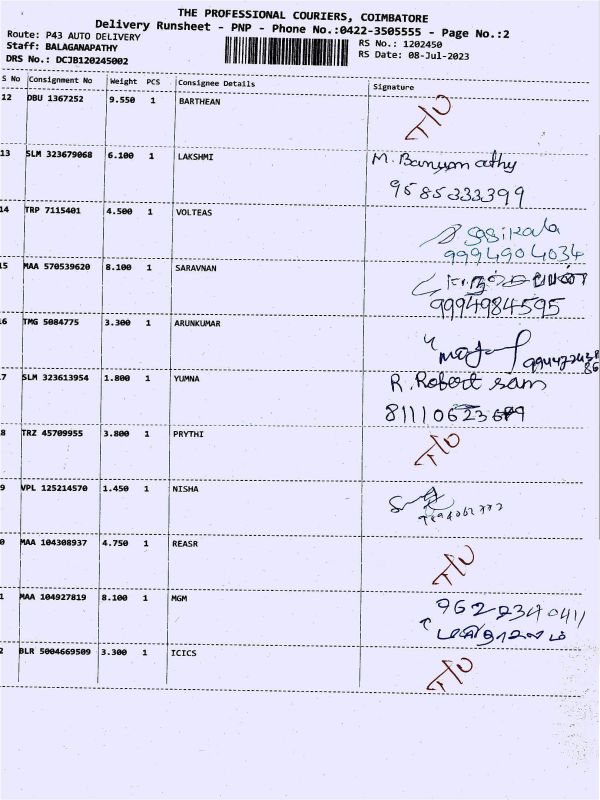 THE PROFESSIONAL COURIERS, COIMBATORE
Delivery Runsheet - PNP - Phone No.:0422-3505555 - Page No.:2
Route: P43 AUTO DELIVERY
RS No.: 1202450
Staff: BALAGANAPATHY
RS Date: 08-Jul-2023
DRS No.: DCJB120245002
S No Consignment No Weight PCS Consignee Details Signature
12 DBU 1367252 9.550 1 BARTHEAN
13 SLM 323679068 6.100 1 LAKSHMI M. Banumathy
9585333399
14 TRP 7115401 4.500 1 VOLTEAS Sasikala
9994904034
15 MAA 570539620 8.100 1 SARAVNAN
9994984595
16 TMG 5084775 3.300 1 ARUNKUMAR
17 SLM 323613954 1.800 1 YUMNA R. Robert sam
8 TRZ 45709955 3.800 1 PRYTHI
9 VPL 125214570 1.450 1 NISHA
0 MAA 104308937 4.750 1 REASR
1 MAA 104927819 8.100 1 MGM
2 BLR 5004669509 3.300 1 ICICS